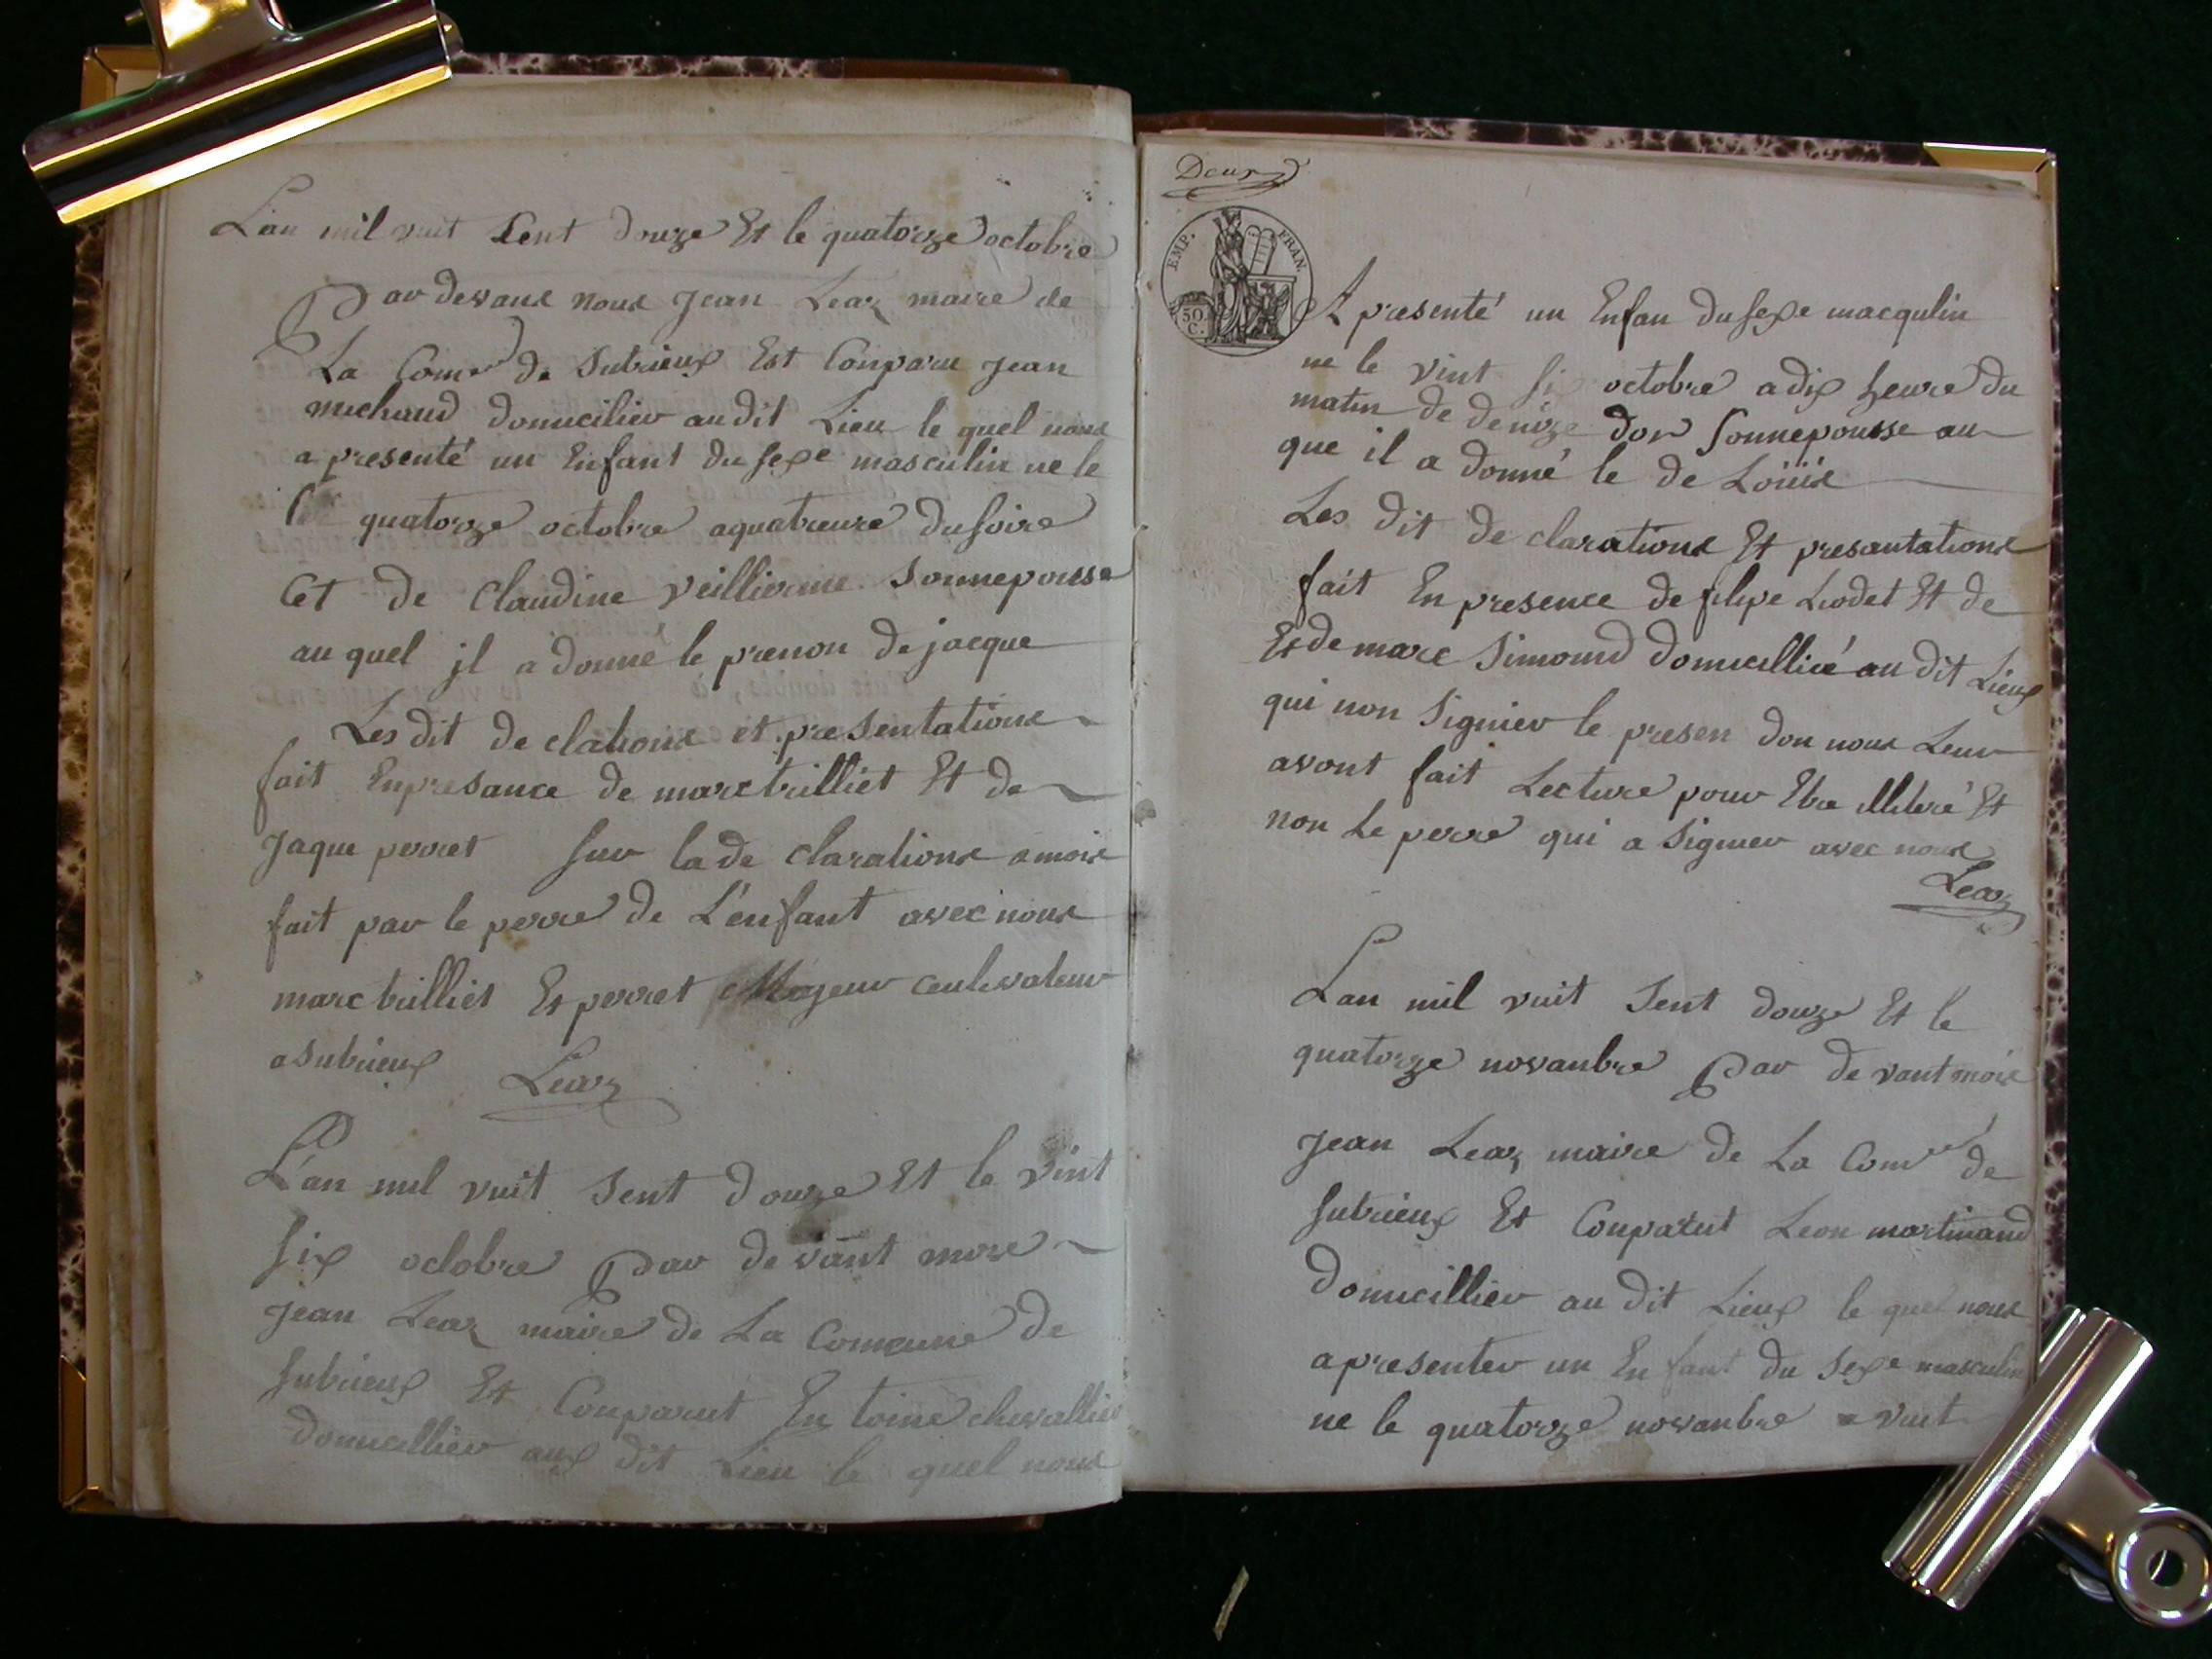 L'an mil vuit Sent douze Et le quatorze octobre
Par devant nous Jean Leaz maire de
La Com.ne de Sutrieux Est Conparu Jean
michaud domicilier au dit Lieu le quel nous
a presenté un Enfant du sexe masculin ne le
quatorze octobre aquatreure du soire
Et de Claudine Sonnepousse
au quel il a donné le prenon de jacque
Les dit de clations et presentations
fait Enpresance de marc trilliet Et de
Jaque perret sur la de clarations a mois
fait par le perre de L'enfant avec nous
marc trilliet Et perret Majeur
a Sutrieux Leaz
L'an mil vuit Sent douze Et le vint
six octobre Par de vant
Jean Leaz maire de La Comeune de
Sutrieux Et Conparut En toine chevallier
domicillier aux dit Lieu le quel nous
Deux
EMP. FRAN.
50
C.
A presenté un Enfan du sexe macqulin
ne le vint six octobre a dix heure du
matin de denize dor Sonnepousse au
que il a donné le de Loüis
Les dit de clarations Et presantations
fait En presence de filipe Liodet Et de
Et de marc Simond domicillié au dit Lieux
qui non Signier le presen don nous Leur
avont fait Lecture pour Etre illiteré Et
non Le perre qui a Signier avec nous
Leaz
L'an mil vuit Sent douze Et le
quatorze novanbre Par de vant mois
Jean Leaz maire de La Com.ne de
Sutrieux Et Conparut Leon martinand
Domicillier au dit Lieux le quel nous
a presenter un En fant du Sexe masculin
ne le quatorze novanbre a vuit